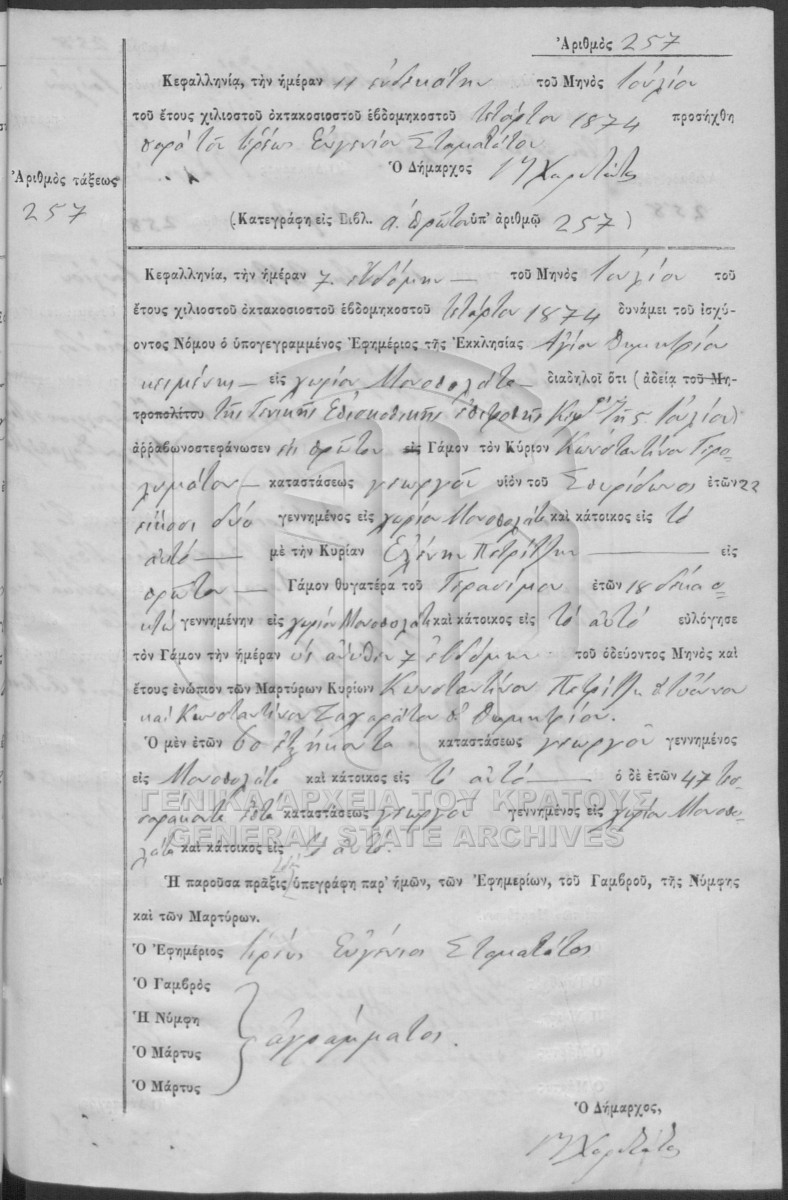 Ἀριθμὸς 257
Κεφαλληνίᾳ, τὴν ἡμέραν 11 ἑνδεκάτην τοῦ Μηνὸς Ἰουλίου
τοῦ ἔτους χιλιοστοῦ ὀκτακοσιοστοῦ ἑβδομηκοστοῦ τετάρτου 1874 προσήχθη
παρὰ τοῦ ἱερέως Εὐγενίου Σταματάτου
Ὁ Δήμαρχος
Ἀριθμὸς τάξεως
257
(Κατεγράφη εἰς Βιβλ. α. πρῶτον ὑπ' ἀριθμῷ 257)
Κεφαλληνίᾳ, τὴν ἡμέραν 7. ἑβδόμην — τοῦ Μηνὸς Ἰουλίου τοῦ
ἔτους χιλιοστοῦ ὀκτακοσιοστοῦ ἑβδομηκοστοῦ τετάρτου 1874 δυνάμει τοῦ ἰσχύ-
οντος Νόμου ὁ ὑπογεγραμμένος Ἐφημέριος τῆς Ἐκκλησίας Ἁγίου Δημητρίου
κειμένης — εἰς χωρίον Μονοπολάτα — διαδηλοῖ ὅτι (ἀδείᾳ τοῦ Μη-
τροπολίτου τῆς Γενικῆς Ἐπισκοπικῆς ἐπιτροπῆς τῆς 5 Ἰουλίου)
ἀρῥαβωνοστεφάνωσεν εἰς πρῶτον εἰς Γάμον τὸν Κύριον Κωνσταντῖνον Γερο-
λυμάτον — καταστάσεως γεωργοῦ υἱὸν τοῦ Σπυρίδωνος ἐτῶν 22
εἴκοσι δύο γεννημένος εἰς χωρίον Μονοπολάτα καὶ κάτοικος εἰς τὸ
αὐτό — μὲ τὴν Κυρίαν Ἑλένην Πετρίτζη — εἰς
πρῶτον — Γάμον θυγατέρα τοῦ Γερασίμου ἐτῶν 18 δέκα ο-
κτὼ γεννημένην εἰς χωρίον Μονοπολάτα καὶ κάτοικος εἰς τὸ αὐτό εὐλόγησε
τὸν Γάμον τὴν ἡμέραν ὡς ἄνωθεν 7 ἑβδόμην τοῦ ὁδεύοντος Μηνὸς καὶ
ἔτους ἐνώπιον τῶν Μαρτύρων Κυρίων Κωνσταντίνου Πετρίτζη Ἰωάννου
καὶ Κωνσταντίνου Ζαχαράτου Δημητρίου.
Ὁ μὲν ἐτῶν 60 ἑξήκοντα καταστάσεως γεωργοῦ γεννημένος
εἰς Μονοπολάτα καὶ κάτοικος εἰς τὸ αὐτό — ὁ δὲ ἐτῶν 47 τεσ-
σαράκοντα ἑπτὰ καταστάσεως γεωργοῦ γεννημένος εἰς χωρίον Μονοπο-
λάτα καὶ κάτοικος εἰς τὸ αὐτό.
ΓΕΝΙΚΑ ΑΡΧΕΙΑ ΤΟΥ ΚΡΑΤΟΥΣ
GENERAL STATE ARCHIVES
Ἡ παροῦσα πρᾶξις ὑπεγράφη παρ' ἡμῶν, τῶν Ἐφημερίων, τοῦ Γαμβροῦ, τῆς Νύμφης
καὶ τῶν Μαρτύρων.
Ὁ Ἐφημέριος Ἱερεὺς Εὐγένιος Σταματάτος
Ὁ Γαμβρὸς
Ἡ Νύμφη
ἀγράμματος.
Ὁ Μάρτυς
Ὁ Μάρτυς
Ὁ Δήμαρχος,